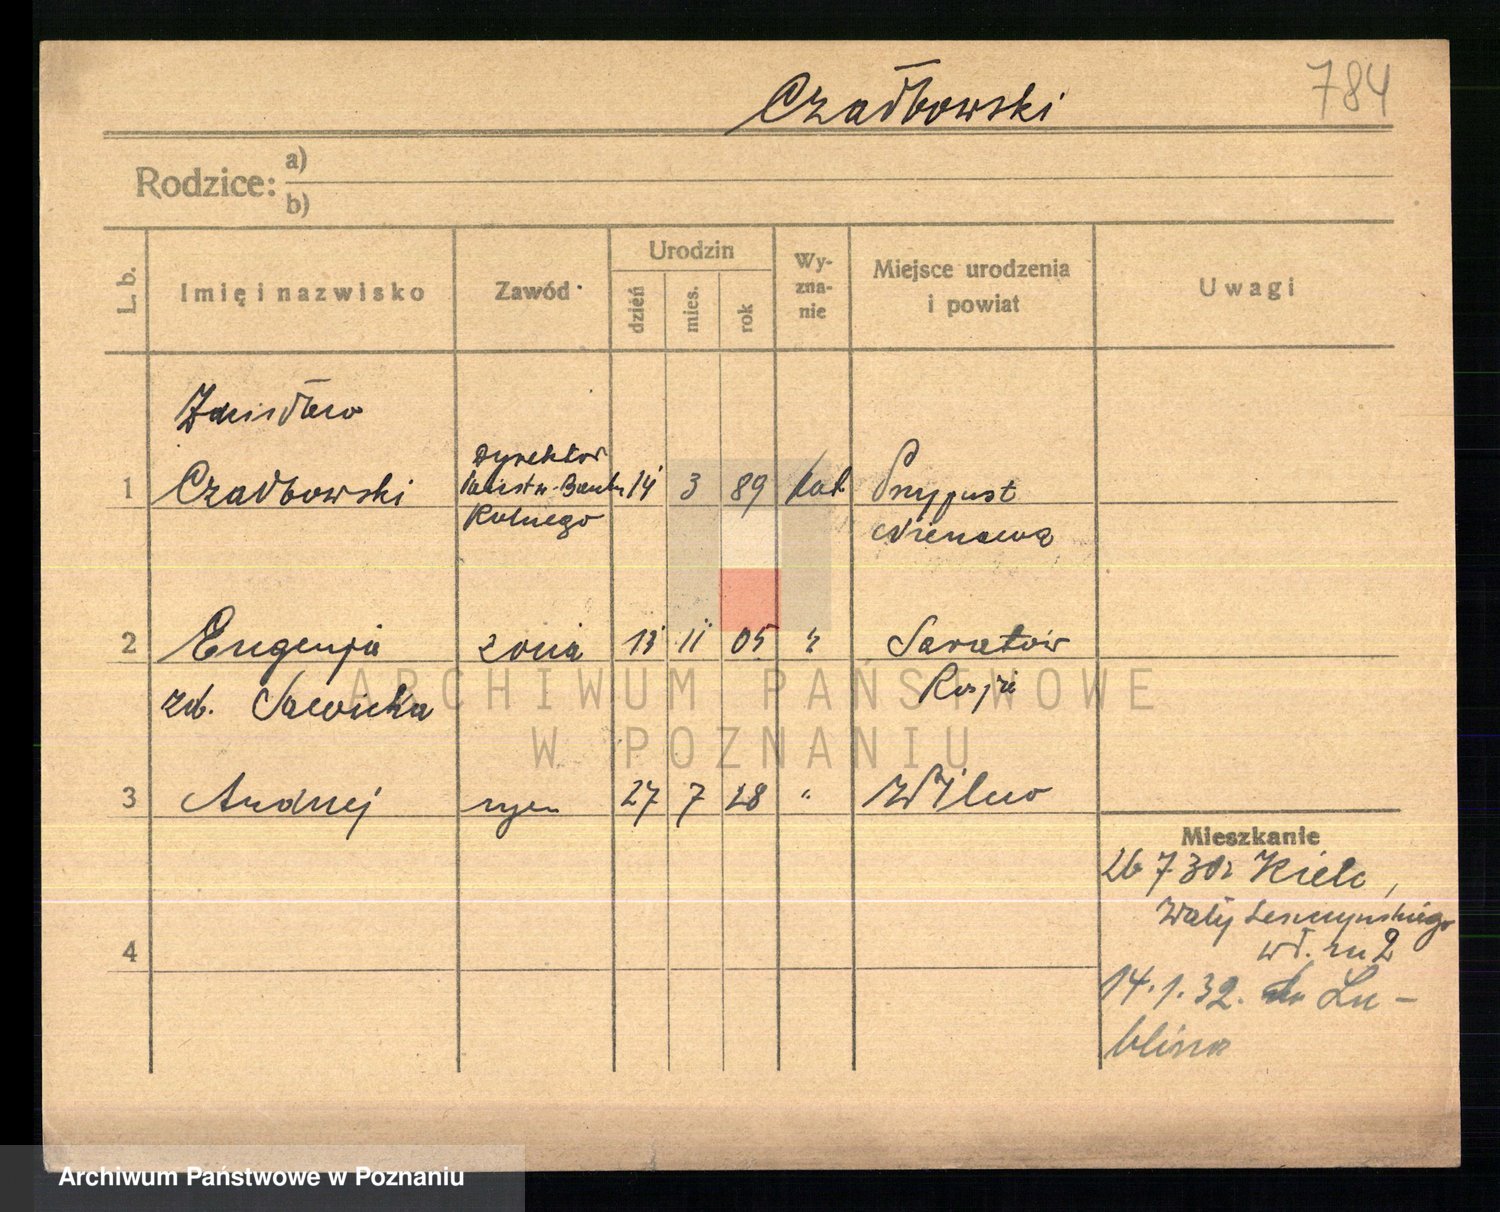 784
Czadbowski
Rodzice: a)
b)
L. b.
Imię i nazwisko
Zawód
Urodzin
dzień
mies.
rok
Wy-
zna-
nie
Miejsce urodzenia
i powiat
Uwagi
Zdzisław
1 Czadbowski Dyrektor Państw. Banku Rolnego 14 3 89 kat Przypust
Nieszawa
2 Eugenja żona 13 11 05 " Saratów
zd. Sawicka Rosja
3 Andrzej syn 27 7 28 " Wilno
4
Mieszkanie
26 7 30 z Kielc,
Wały Leszczyńskiego
wł. m 2
14.1.32. do Lu-
blina
ARCHIWUM PAŃSTWOWE
W POZNANIU
Archiwum Państwowe w Poznaniu